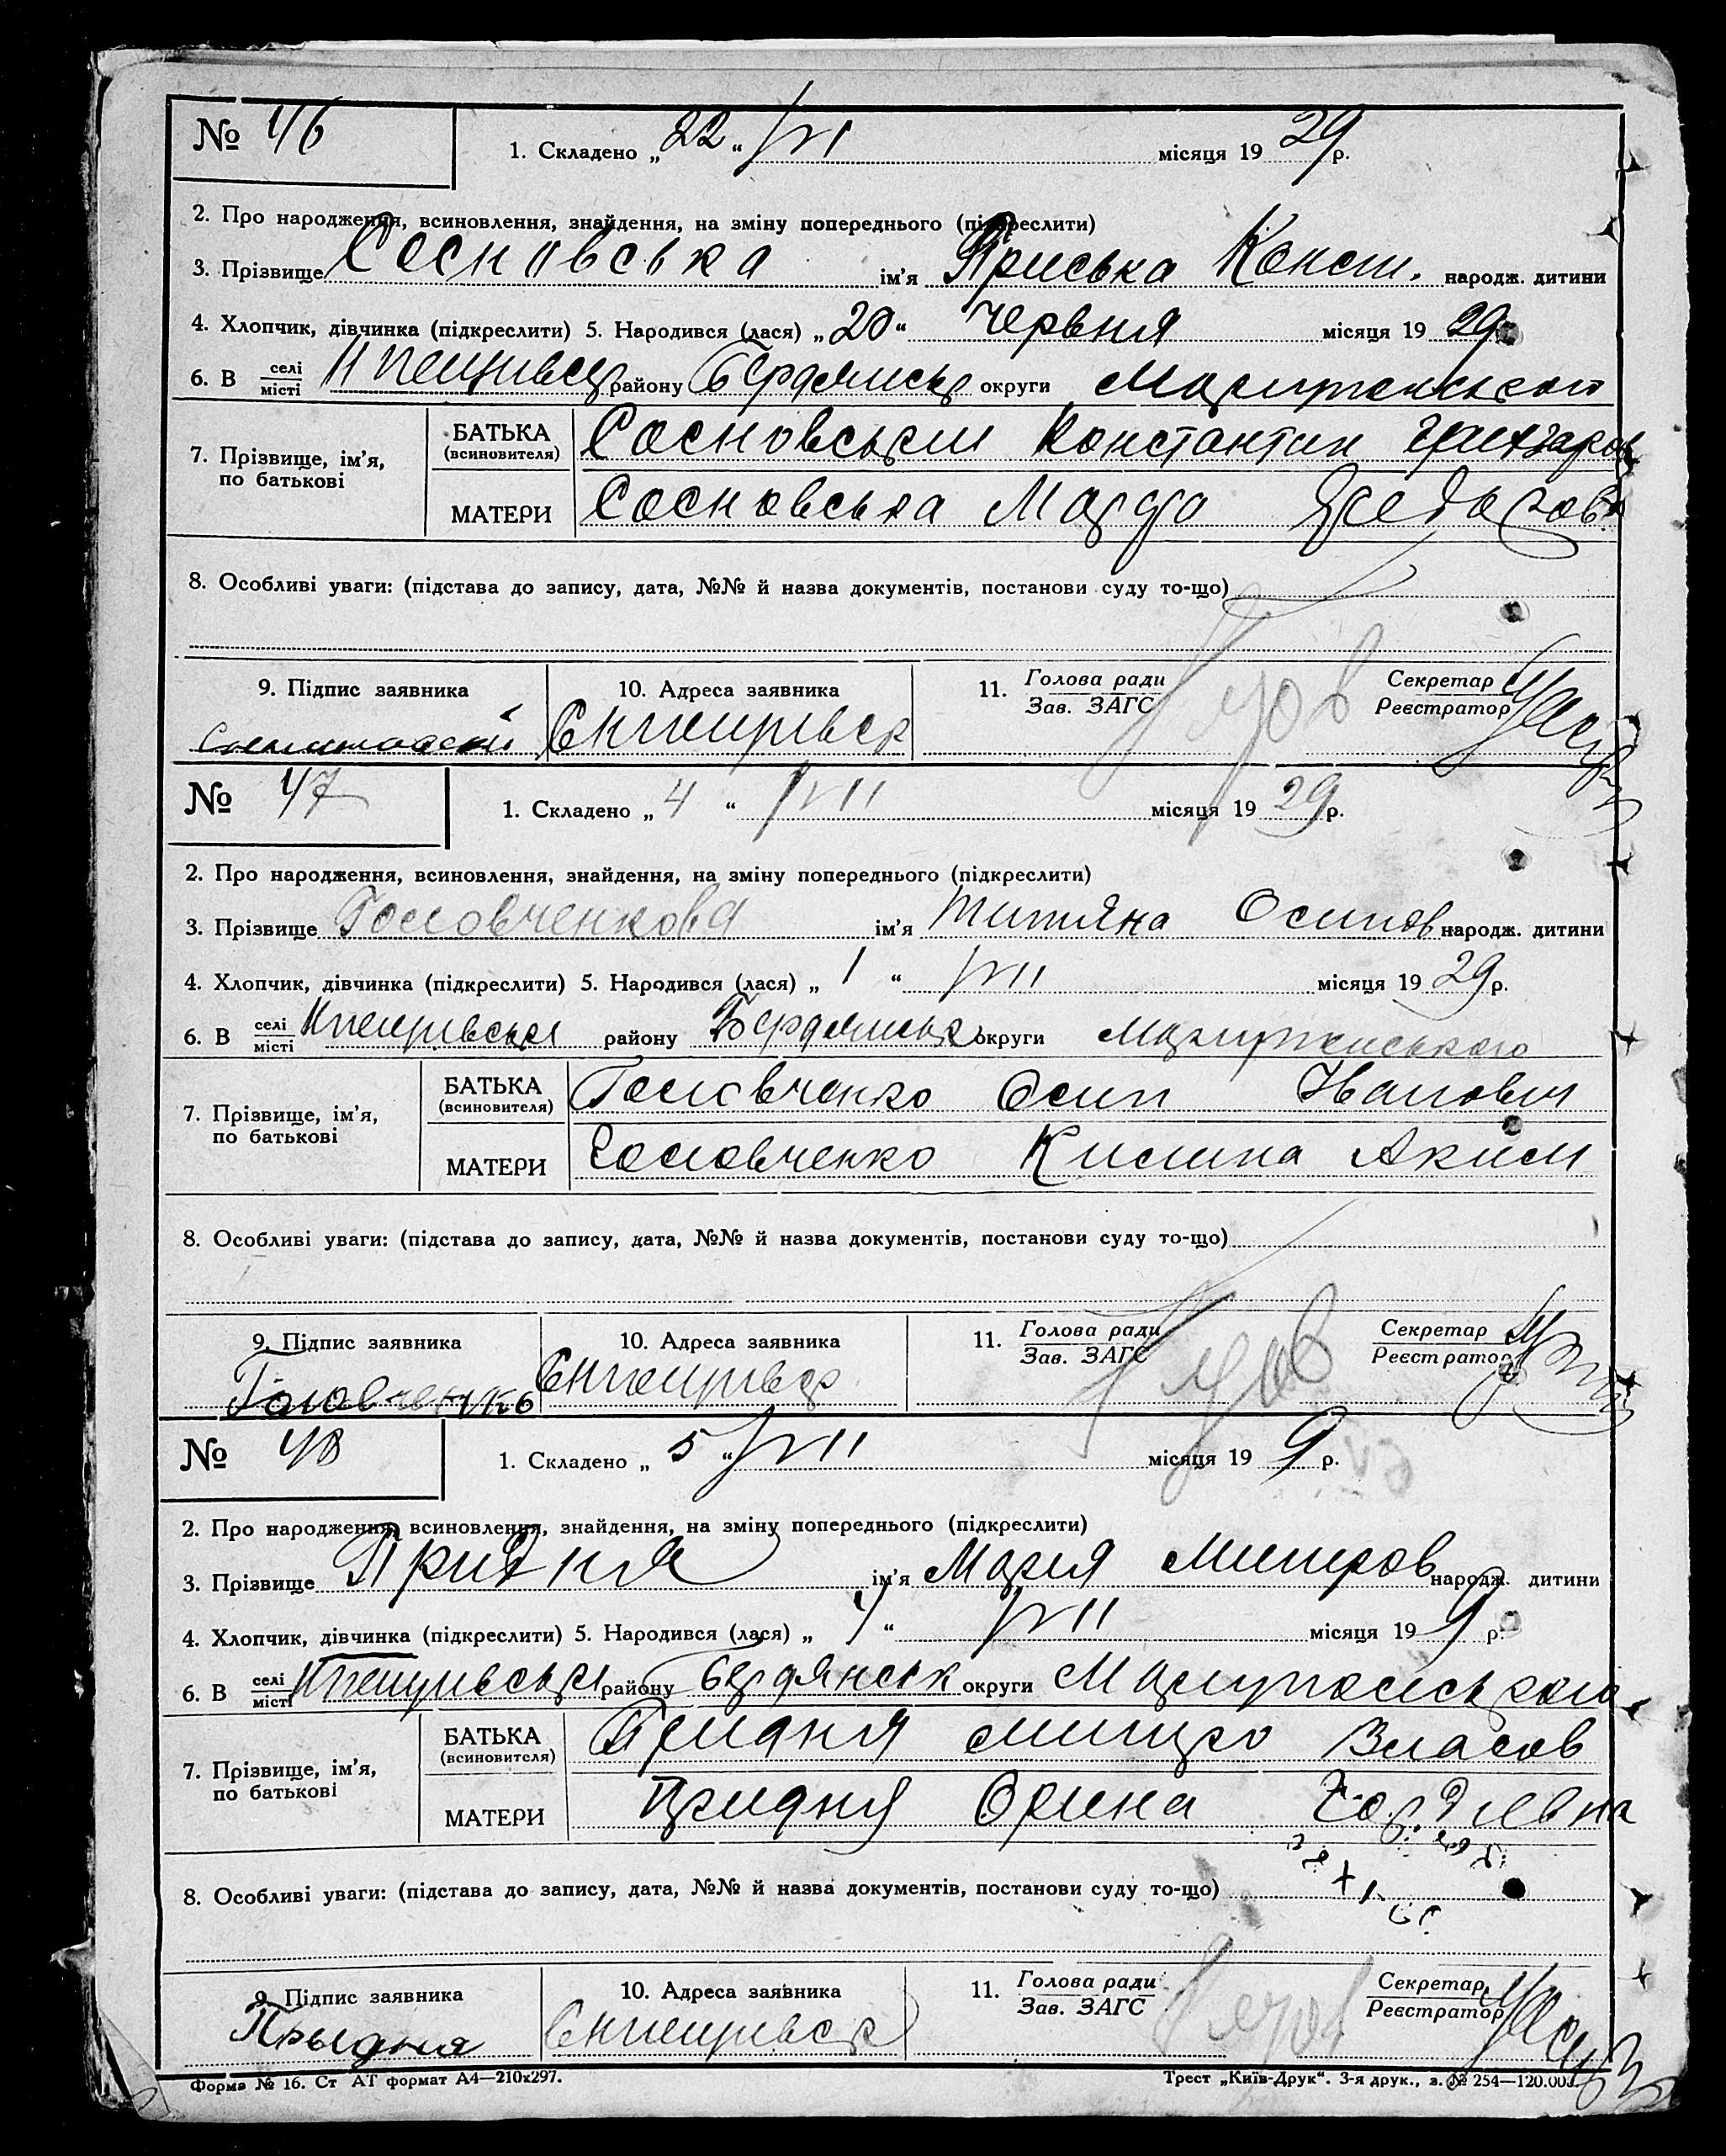 № 46 1. Складено „22“ VI місяця 1929 р.
2. Про народження, всиновлення, знайдення, на зміну попереднього (підкреслити)
3. Прізвище Сосновська ім’я Приська Конст. народж. дитини
4. Хлопчик, дівчинка (підкреслити) 5. Народився (лася) „20“ червня місяця 1929 р.
6. В селі місті району Бердянськ округи
7. Прізвище, ім’я, по батькові БАТЬКА (всиновителя) Сосновський Константин
МАТЕРИ Сосновська
8. Особливі уваги: (підстава до запису, дата, №№ й назва документів, постанови суду то-що)
9. Підпис заявника 10. Адреса заявника 11. Голова ради Зав. ЗАГС Секретар Реєстратор
№ 47 1. Складено „4“ VII місяця 1929 р.
2. Про народження, всиновлення, знайдення, на зміну попереднього (підкреслити)
3. Прізвище Головченкова ім’я Титяна Осипов народж. дитини
4. Хлопчик, дівчинка (підкреслити) 5. Народився (лася) „1“ VII місяця 1929 р.
6. В селі місті району Бердянськ округи
7. Прізвище, ім’я, по батькові БАТЬКА (всиновителя) Головченко Осип Іванович
МАТЕРИ Головченко Килина Аким
8. Особливі уваги: (підстава до запису, дата, №№ й назва документів, постанови суду то-що)
9. Підпис заявника 10. Адреса заявника 11. Голова ради Зав. ЗАГС Секретар Реєстратор
Головченко
№ 48 1. Складено „5“ VII місяця 199 р.
2. Про народження, всиновлення, знайдення, на зміну попереднього (підкреслити)
3. Прізвище Придня ім’я Мария Митров народж. дитини
4. Хлопчик, дівчинка (підкреслити) 5. Народився (лася) „ “ VII місяця 199 р.
6. В селі місті району Бердянськ округи Маріупольського
7. Прізвище, ім’я, по батькові БАТЬКА (всиновителя) Придня Митро Власов
МАТЕРИ Придня Орина Гордиевна
8. Особливі уваги: (підстава до запису, дата, №№ й назва документів, постанови суду то-що)
9. Підпис заявника 10. Адреса заявника 11. Голова ради Зав. ЗАГС Секретар Реєстратор
Прыдня
Форма № 16. Ст АТ формат А4—210х297. Трест „Київ-Друк“. 3-я друк., з. № 254—120.000.